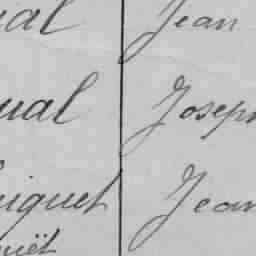 ual Jean
ual Joseph
uiquet Jean
uët